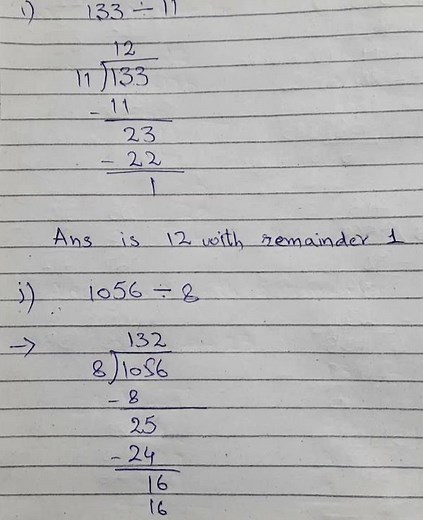 i) 133 ÷ 11
12
11)133
- 11
23
- 22
1
Ans is 12 with remainder 1
j) 1056 ÷ 8
→ 132
8)1056
- 8
25
- 24
16
16